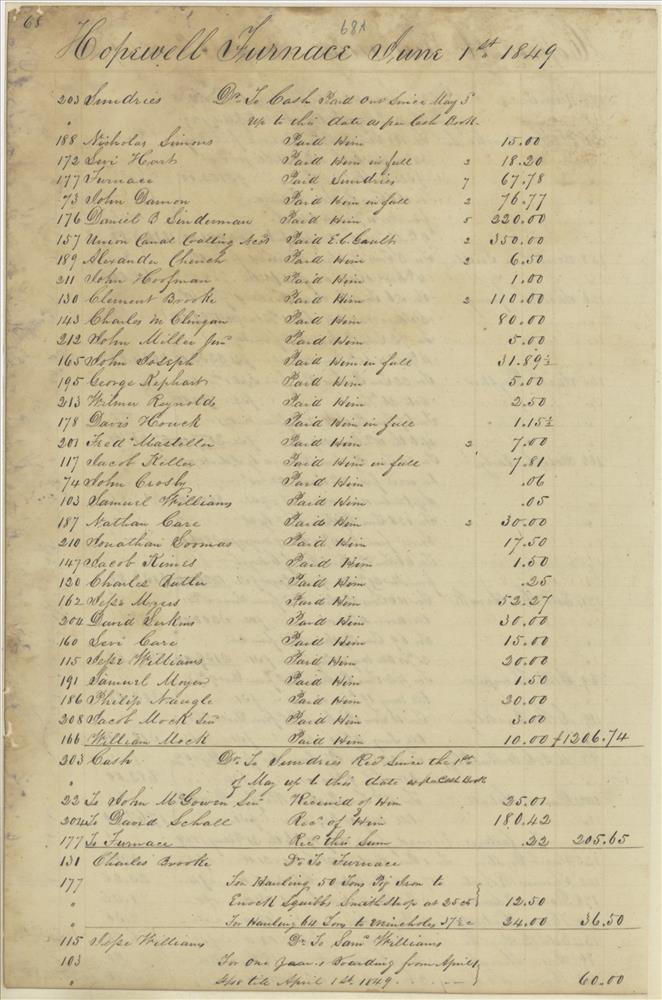 68
68A
Hopewell Furnace June 1st 1849
203 Sundries Dr. To Cash Paid out Since May 5
" Up to this date as per Cash Book
188 Nicholas Simons Paid Him 15.00
172 Levi Hart Paid Him in full 2 18.20
177 Furnace Paid Sundries 7 67.78
73 John Damon Paid Him in full 2 76.77
176 Daniel B Linderman Paid Him 5 220.00
157 Union Canal Coalling Acct Paid E. C. Gault 2 350.00
189 Alexander Church Paid Him 2 6.50
211 John Hoofman Paid Him 1.00
130 Clement Brooke Paid Him 2 110.00
143 Charles M Clingan Paid Him 80.00
212 John Miller Jun Paid Him 5.00
165 John Joseph Paid Him in full 31.89½
195 George Kephart Paid Him 5.00
213 Wilmer Reynolds Paid Him 2.50
178 Davis Houck Paid Him in full 1.15½
201 Fredk Masteller Paid Him 2 7.00
117 Jacob Keller Paid Him in full 7.81
74 John Crosby Paid Him .06
103 Samuel Williams Paid Him .05
187 Nathan Care Paid Him 2 30.00
210 Jonathan Paid Him 17.50
147 Jacob Kimes Paid Him 1.50
120 Charles Butler Paid Him .25
162 Jesse Myers Paid Him 52.27
204 David Paid Him 30.00
160 Levi Care Paid Him 15.00
115 Jesse Williams Paid Him 20.00
191 Samuel Moyer Paid Him 1.50
186 Philip Naugle Paid Him 20.00
208 Jacob Mock Sen Paid Him 3.00
166 William Mock Paid Him 10.00 1206.74
203 Cash Dr. To Sundries Recd Since the 1st
" of May up to this date as per Cash Book
22 To John McGowen Sen Received of Him 25.01
204 To David Schall Recd of Him 180.42
177 To Furnace Recd this Sum .22 205.65
131 Charles Brooke Dr To Furnace
177 For Hauling 50 Tons Pig Iron to
" Enock Squibbs Smith Shop at 25 cts 12.50
" For Hauling 64 Tons to 37½ c 24.00 36.50
115 Jesse Williams Dr. To Saml Williams
103 For one years Boarding from April 1
" 1848 till April 1st. 1849 60.00